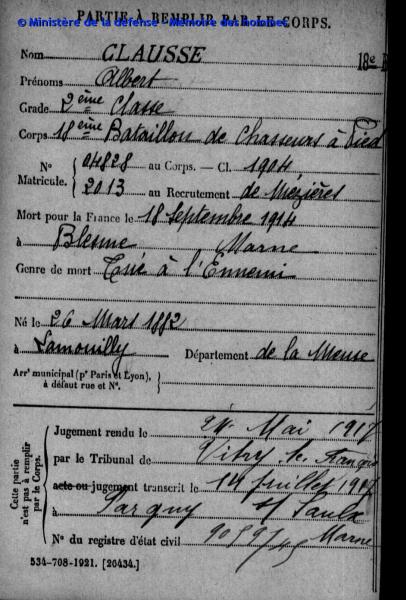 PARTIE À REMPLIR PAR LE CORPS.
© Ministère de la défense - Mémoire des hommes
Nom CLAUSSE
18e B
Prénoms Albert
Grade 2ème Classe
Corps 18ème Bataillon de Chasseurs à Pied
N° 04828 au Corps. — Cl. 1904
Matricule. 2013 au Recrutement de Mézières
Mort pour la France le 18 Septembre 1914
à Blesme Marne
Genre de mort Tué à l'Ennemi
Né le 26 Mars 1882
à Lamouilly Département de la Meuse
Arrt municipal (pr Paris et Lyon),
à défaut rue et N°.
Cette partie n'est pas à remplir par le Corps.
Jugement rendu le 24 Mai 1917
par le Tribunal de Vitry le François
acte ou jugement transcrit le 14 Juillet 1917
à Pargny s/ Saulx
N° du registre d'état civil Marne
534-708-1921. [26434.]